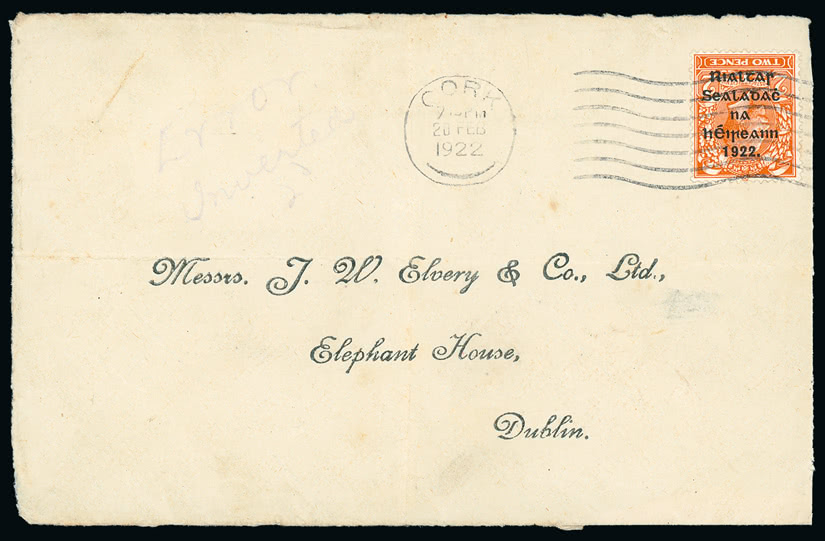 CORK
20 FEB
1922
TWO PENCE
Rialtar
Sealadaċ
na
hÉireann
1922.
Error
Inverted
Messrs. J. W. Elvery & Co., Ltd.,
Elephant House,
Dublin.